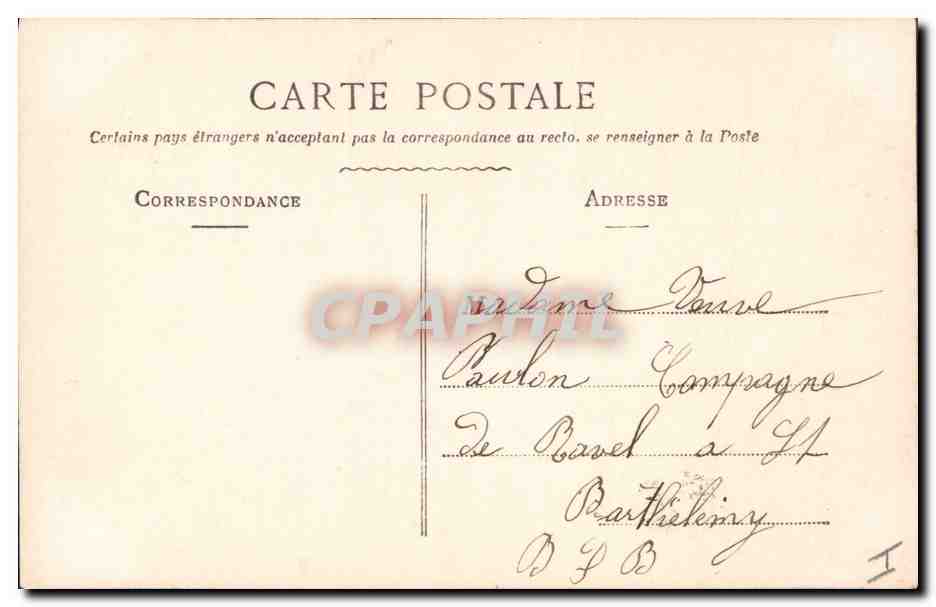 CARTE POSTALE
Certains pays étrangers n'acceptant pas la correspondance au recto. se renseigner à la Poste
CORRESPONDANCE
ADRESSE
CPAPHIL
Madame Veuve
Paulon Campagne
de Ravel a St
Barthélemy
B D R
I